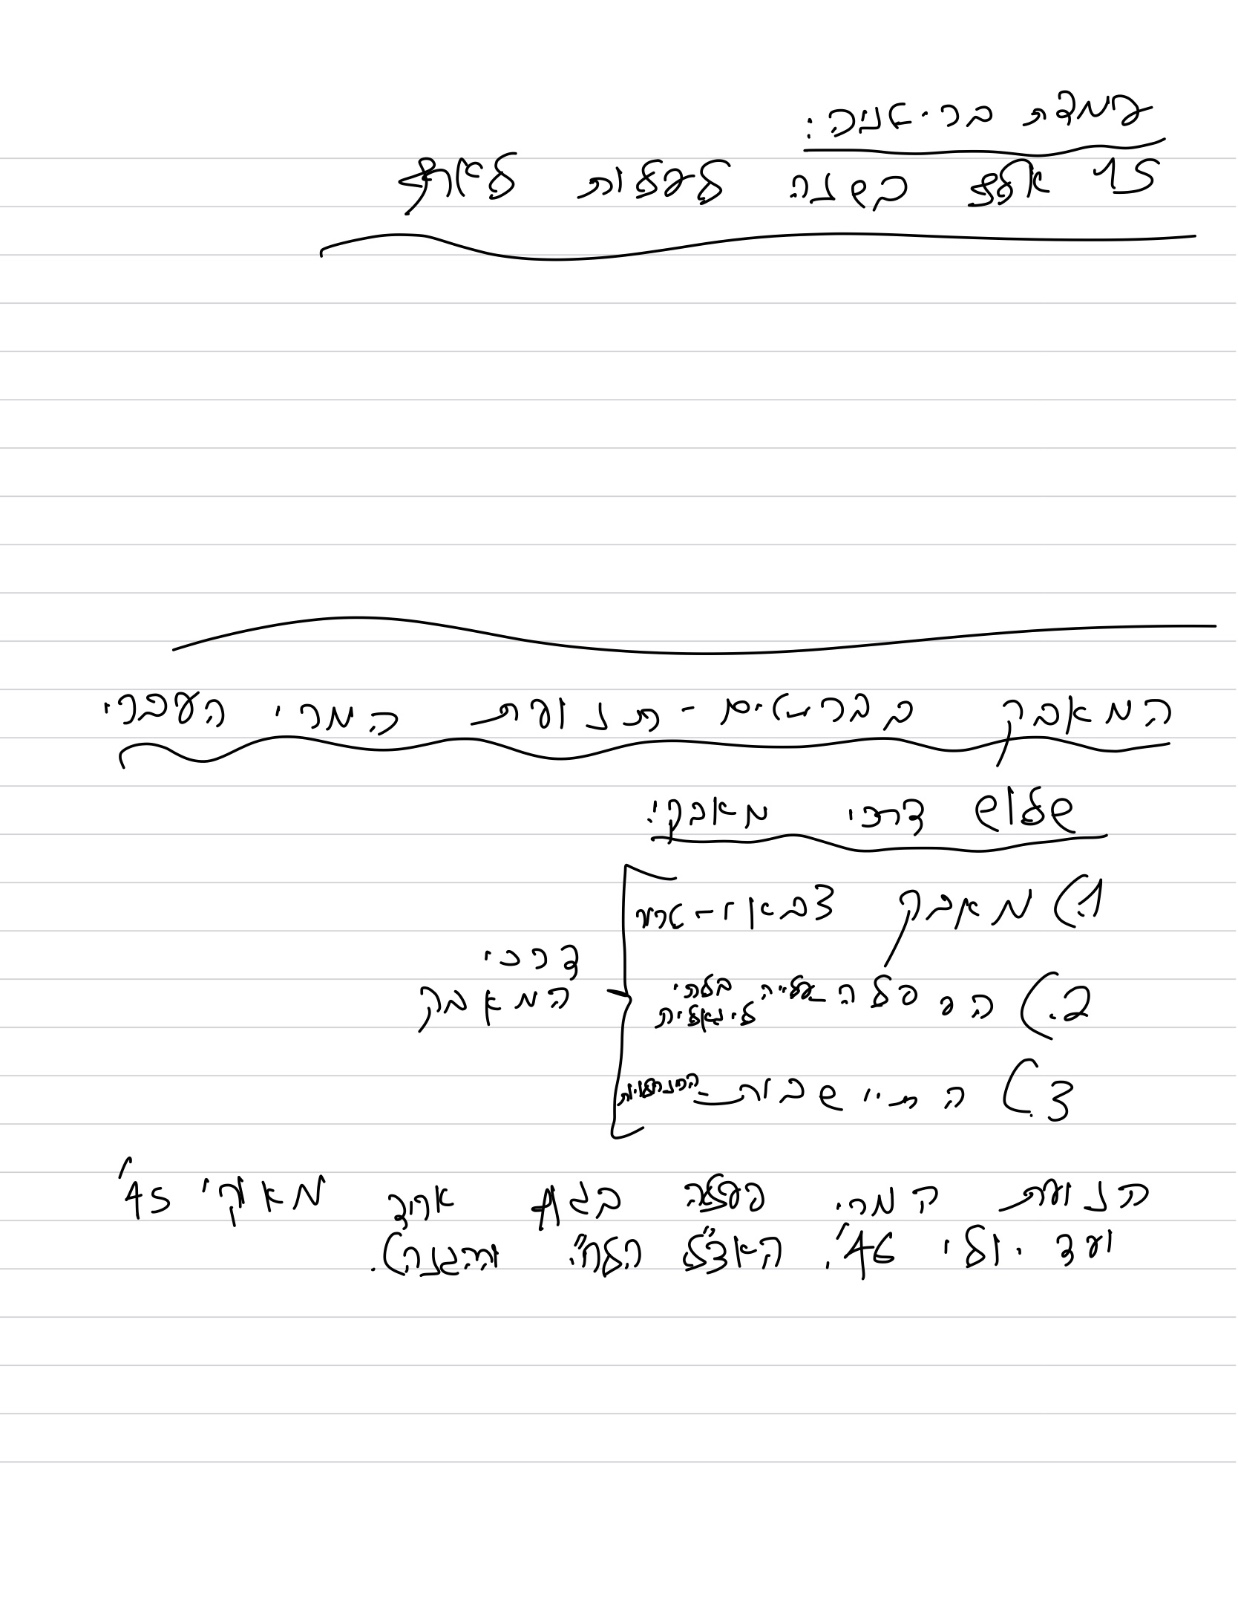 עמדת בריטניה:
15 אלף בשנה לעלות לארץ
המאבק בבריטים - תנועת המרי העברי
שלוש דרכי מאבק:
1.) מאבק צבאי -
2.) העפלה עלייה בלתי ליגאלית
3.) התיישבות -
דרכי
המאבק
תנועת המרי פעלה בגוף אחיד מאוק' 45'
ועד יולי 46'. האצ"ל הלח"י וההגנה).